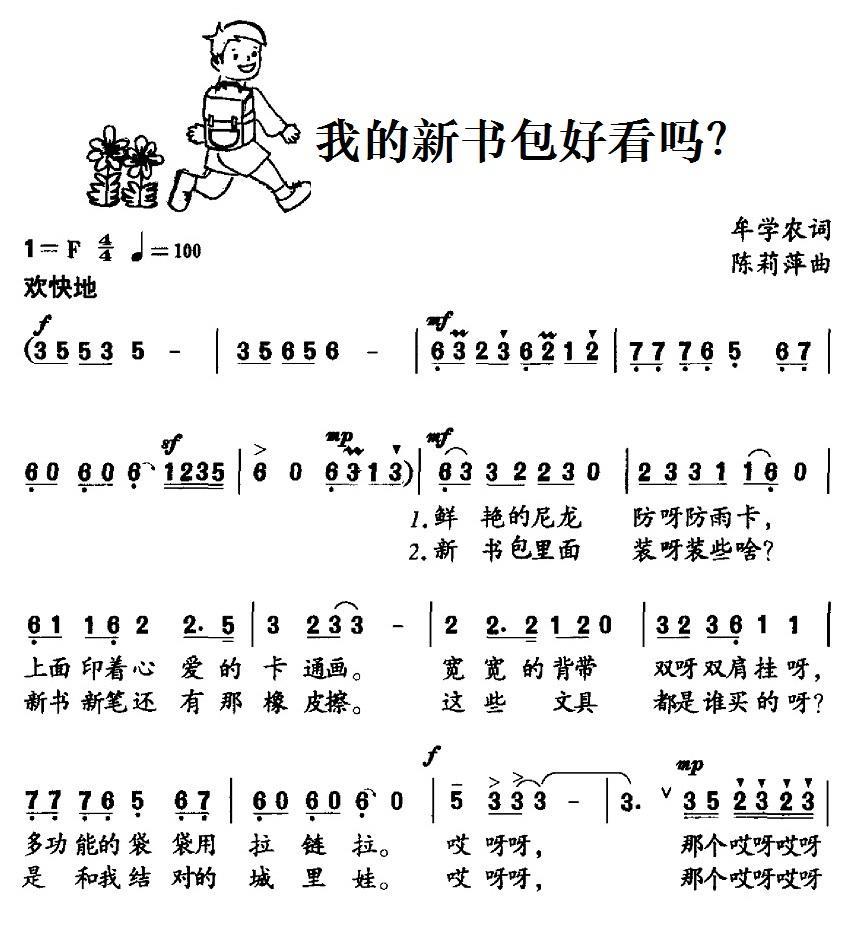 我的新书包好看吗?
牟学农词
1=F 4/4 ♩=100
陈莉萍曲
欢快地
f mf
(3 5 5 3 5 - | 3 5 6 5 6 - | 6 3 2 3 6 2 1 2 | 7 7 7 6 5 6 7 |
sf mp mf
6 0 6 0 6 1 2 3 5 | 6 0 6 3 1 3) | 6 3 3 2 2 3 0 | 2 3 3 1 1 6 0 |
1.鲜 艳的尼龙 防呀防雨卡,
2.新 书包里面 装呀装些啥?
6 1 1 6 2 2. 5 | 3 2 3 3 - | 2 2. 2 1 2 0 | 3 2 3 6 1 1 |
上面 印着心 爱的卡 通画。 宽 宽的背带 双呀双肩挂呀,
新书 新笔还 有那橡 皮擦。 这 些 文具 都是谁买的呀?
f mp
7 7 7 6 5 6 7 | 6 0 6 0 6 0 | 5 3 3 3 - | 3. ∨ 3 5 2 3 2 3 |
多功能的袋 袋用 拉 链 拉。 哎 呀呀, 那个哎呀哎呀
是 和我结 对的 城 里 娃。 哎 呀呀, 那个哎呀哎呀